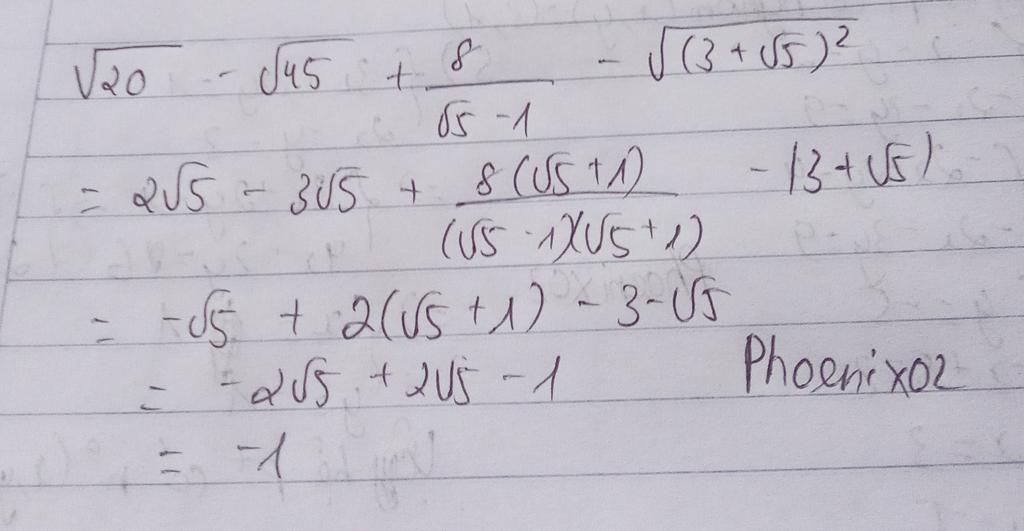 √20 - √45 + 8/(√5 - 1) - √((3 + √5)²)
= 2√5 - 3√5 + 8(√5 + 1)/((√5 - 1)(√5 + 1)) - |3 + √5|
= -√5 + 2(√5 + 1) - 3 - √5
= -2√5 + 2√5 - 1
Phoenix02
= -1